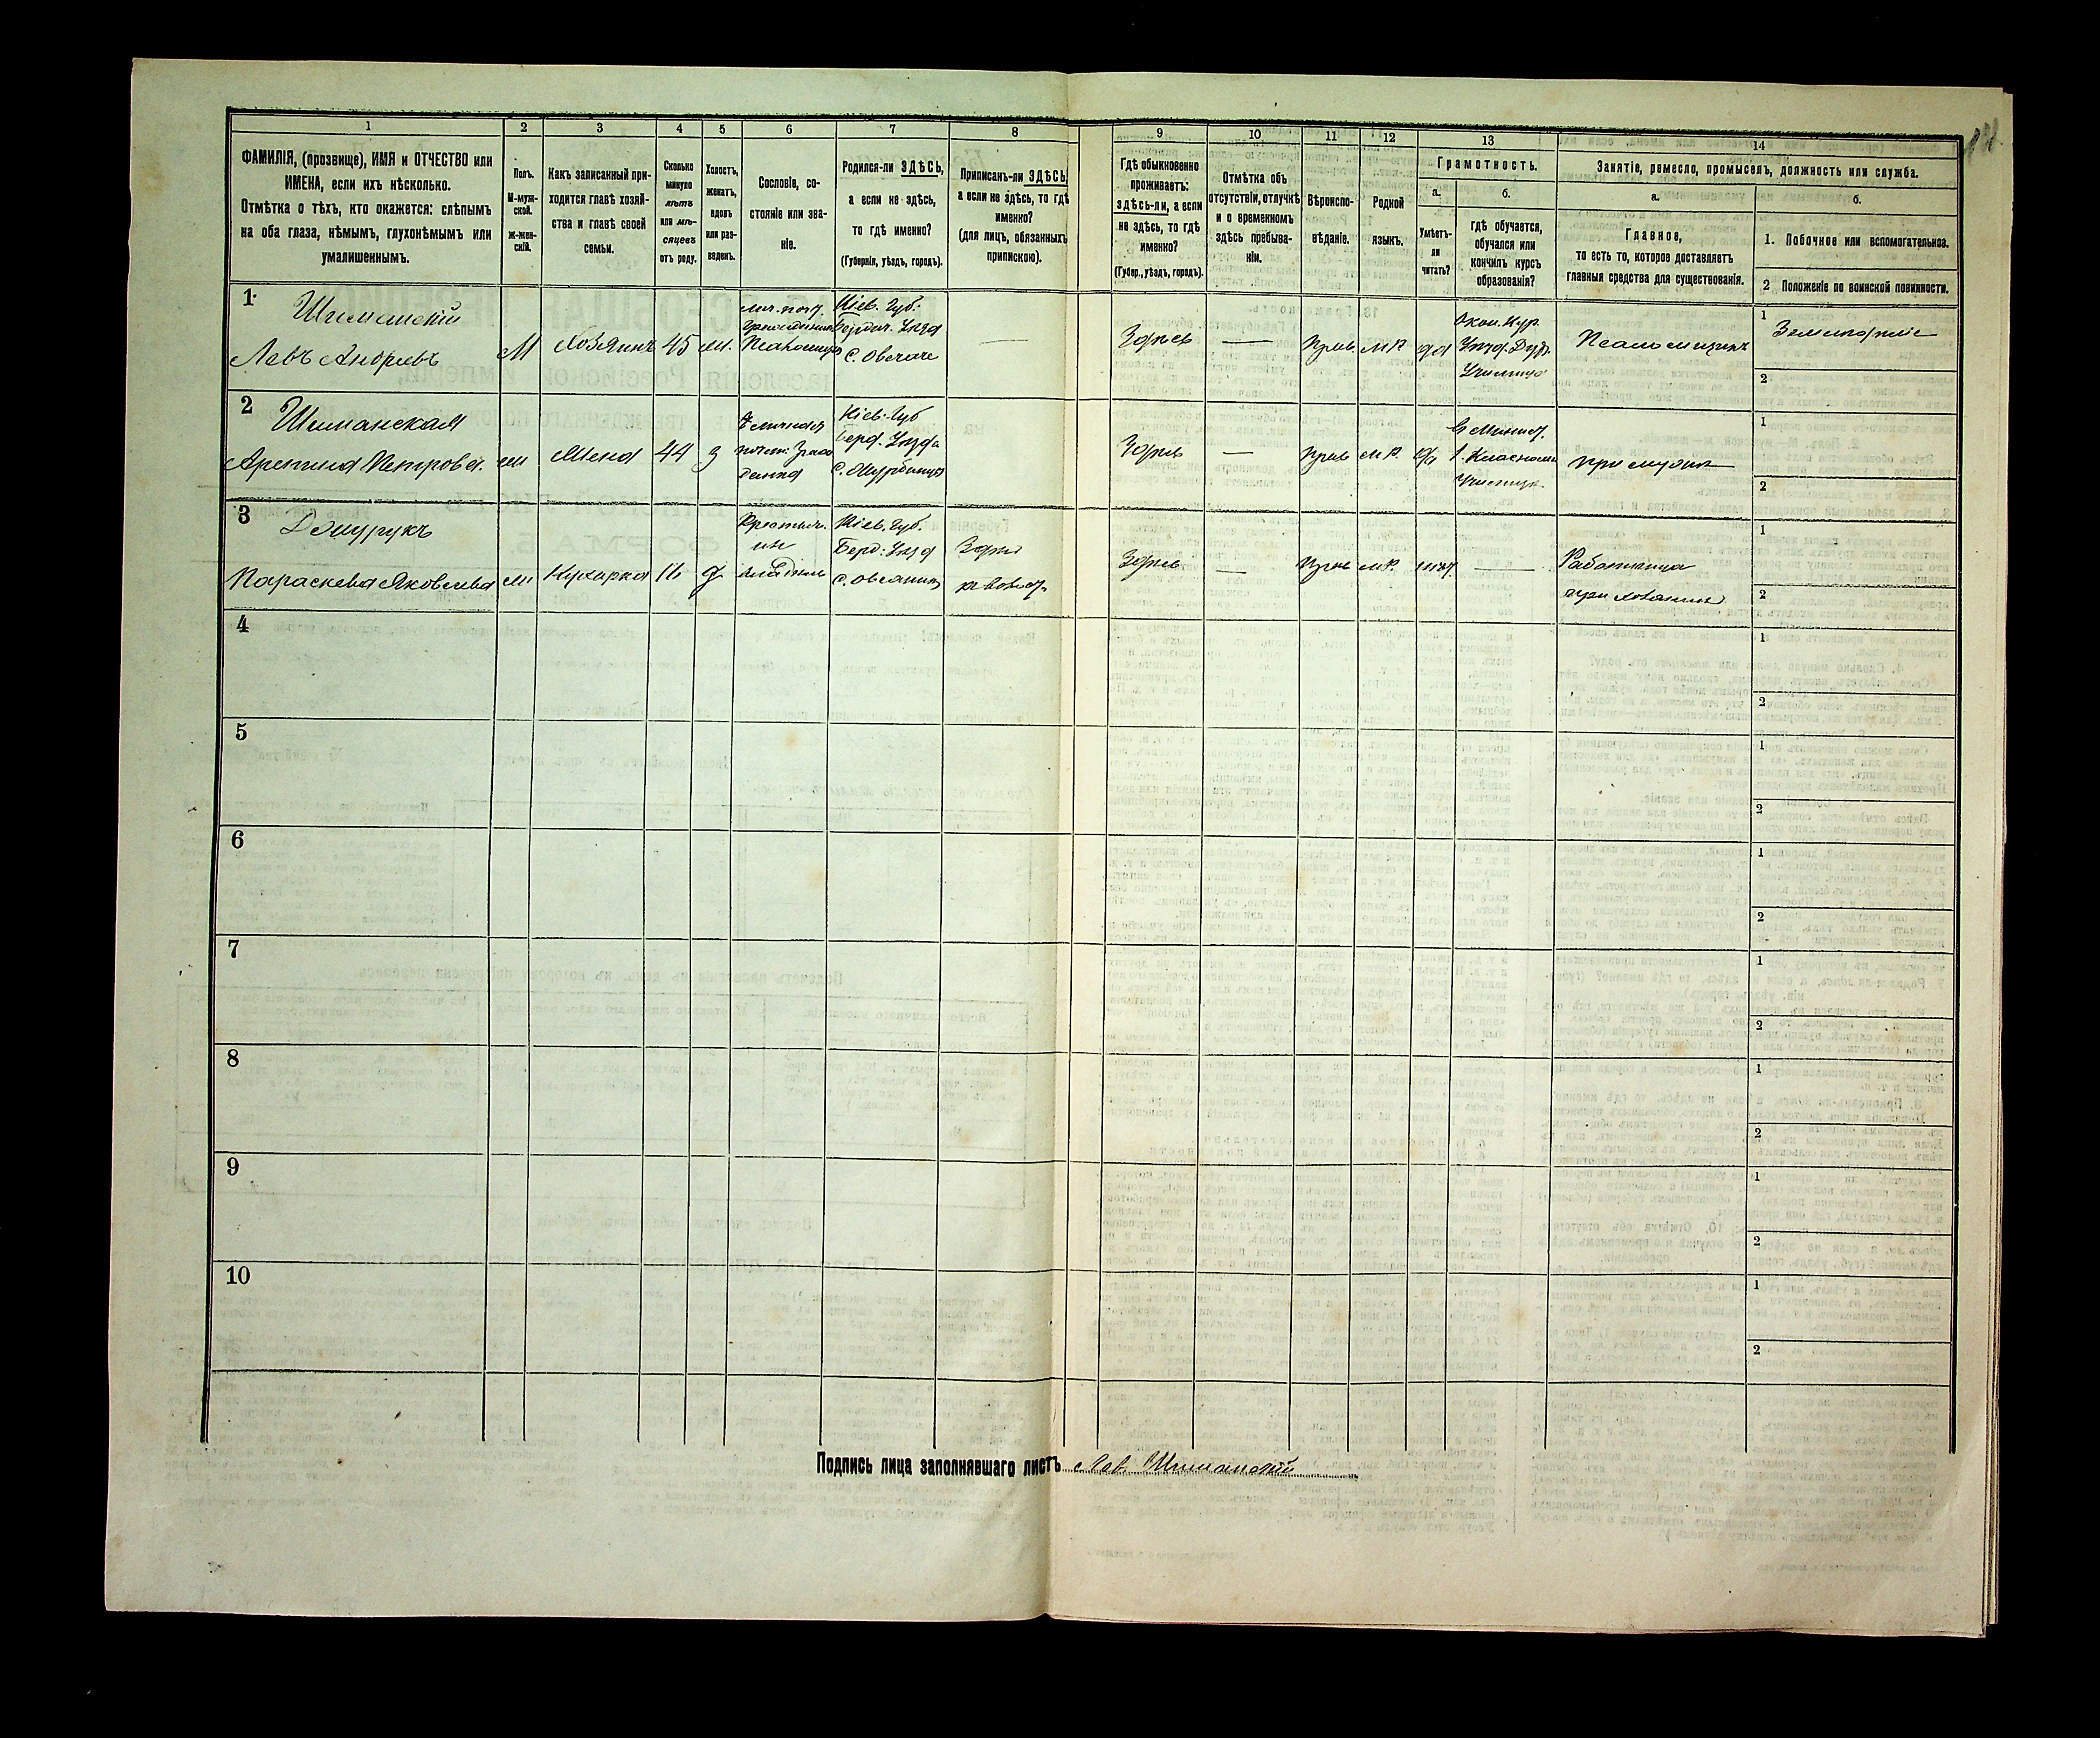 1
2
3
4
5
6
7
8
9
10
11
12
13
14
ФАМИЛІЯ, (прозвище), ИМЯ и ОТЧЕСТВО или
ИМЕНА, если ихъ нѣсколько.
Отмѣтка о тѣхъ, кто окажется: слѣпымъ
на оба глаза, нѣмымъ, глухонѣмымъ или
умалишеннымъ.
Полъ.
М-муж-
ской.
ж-жен-
скій.
Какъ записанный при-
ходится главѣ хозяй-
ства и главѣ своей
семьи.
Сколько
минуло
лѣтъ
или мѣ-
сяцевъ
отъ роду.
Холостъ,
женатъ,
вдовъ
или раз-
веденъ.
Сословіе, со-
стояніе или зва-
ніе.
Родился-ли ЗДѢСЬ,
а если не здѣсь,
то гдѣ именно?
(Губернія, уѣздъ, городъ).
Приписанъ-ли ЗДѢСЬ,
а если не здѣсь, то гдѣ
именно?
(для лицъ, обязанныхъ
припискою).
Гдѣ обыкновенно
проживаетъ:
здѣсь-ли, а если
не здѣсь, то гдѣ
именно?
(Губер., уѣздъ, городъ).
Отмѣтка объ
отсутствіи, отлучкѣ
и о временномъ
здѣсь пребыва-
ніи.
Вѣроиспо-
вѣданіе.
Родной
языкъ.
Грамотность.
а.
Умѣетъ-
ли
читать?
б.
гдѣ обучается,
обучался или
кончилъ курсъ
образованія?
Занятіе, ремесло, промыселъ, должность или служба.
а.
Главное,
то есть то, которое доставляетъ
главныя средства для существованія.
б.
1. Побочное или вспомогательное.
2 Положеніе по воинской повинности.
1
Шиманскій
Левъ Андреевъ
М
Хозяинъ
45
Кіев. Губ.
Бердич. Уѣзд
с. Овсаче
—
Здѣсь
—
Прав.
М.Р.
да
Окон. Кур.
Уѣзд. Дух.
Училища
Псаломщикъ
1
Земледѣліе
2
2
Шиманская
Петрова
Жена
44
з
Кіев. Губ
Берд. Уѣзда
Здѣсь
—
Прав
М.Р.
да
училищѣ
при мужѣ
1
2
3
Параскева Яковлева
Кухарка
16
д
Крестьян.
Кіев. Губ.
Берд. Уѣзд
Здѣсь
Здѣсь
—
Прав
М.Р.
нѣт
—
Работница
при хозяинѣ
1
2
4
1
2
5
1
2
6
1
2
7
1
2
8
1
2
9
1
2
10
1
2
Подпись лица заполнявшаго листъ Лев Шиманскій